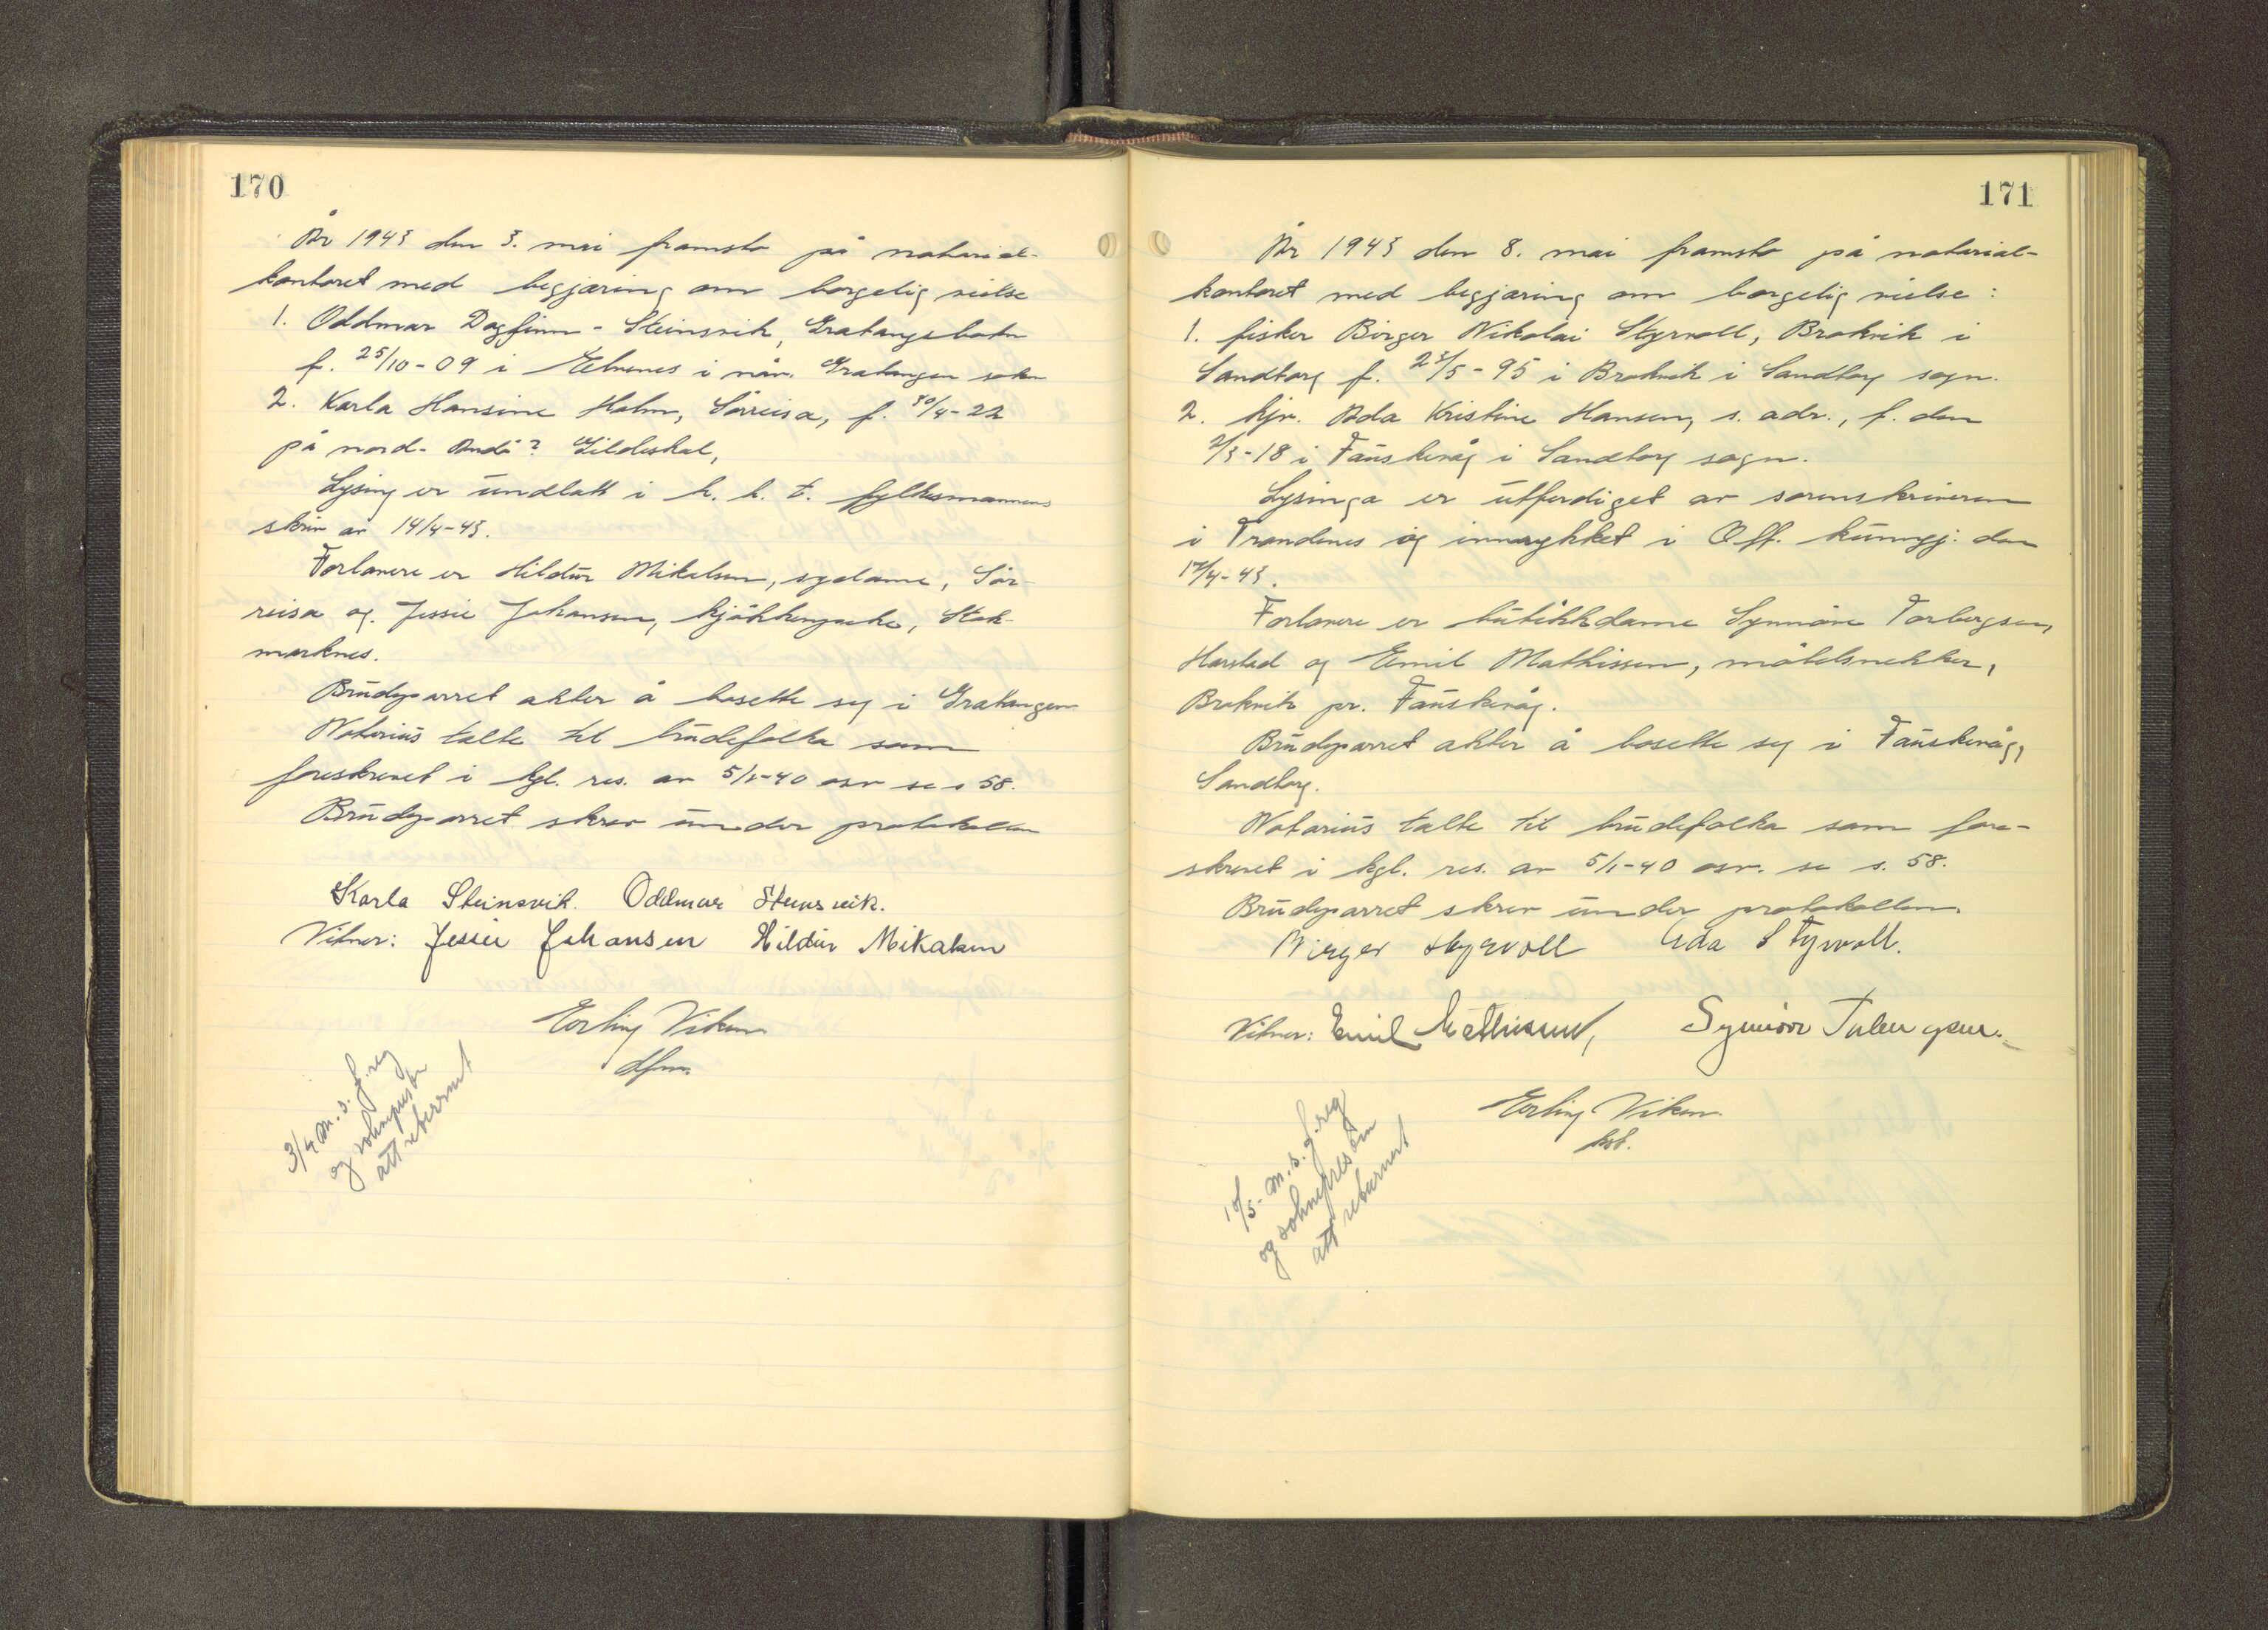 170
År 1943 den 3. mai framsto på notarial-
kontoret med begjæring om borgelig vielse
1. Oddmar Dagfinn - Steinsvik, Gratangsbotn
f. 25/10-09 i Elvenes i nåv. Gratangen sokn
2. Karla Hansine Holm, Sörreisa, f. 30/4-22
på nord- Andö? Gildeskal,
Lysing er undlatt i h. h. t. fylkesmannens
skriv av 14/4-43.
Forlovere er Hildur Mikalsen, sydame, Sör-
reisa og Jessie Johansen, kjökkenpike, Stok-
marknes.
Brudeparret akter å bosette seg i Gratangen
Notarius talte til brudefolka som
foreskrevet i kgl. res. av 5/1-40 osv se s 58.
Brudeparret skrev under protokollen
Karla Steinsvik. Oddmar Steinsvik.
Vitner: Jessie Johansen Hildur Mikalsen
Erling Viken
dfm.
3/4 m. s. f.reg
og
att returnert
171
År 1943 den 8. mai framsto på notarial-
kontoret med begjæring om borgelig vielse:
1. fisker Birger Nikolai Styrvoll, Brokvik i
Sandtorg f. 23/5-95 i Brokvik i Sandtorg sogn.
2. hjv. Ada Kristine Hansen, s. adr., f. den
2/3-18 i Fauskevåg i Sandtorg sogn.
Lysinga er utferdiget av sorenskriveren
i Trondenes og innrykket i Off. kunngj. den
17/4-43.
Forlovere er butikkdame Synnöve Torbergsen,
Harstad og Emil Mathissen, möbelsnekker,
Brokvik pr. Fauskevåg.
Brudeparret akter å bosette seg i Fauskevåg,
Sandtorg.
Notarius talte til brudefolka som fore-
skrevet i kgl. res. av 5/1-40 osv. se s. 58.
Brudeparret skrev under protokollen.
Birger Styrvoll Ada Styrvoll.
Vitner: Emil Mathissen, Synnöve Torbergsen.
Erling Viken
kst.
10/5- m. s. f.reg
og
att returnert